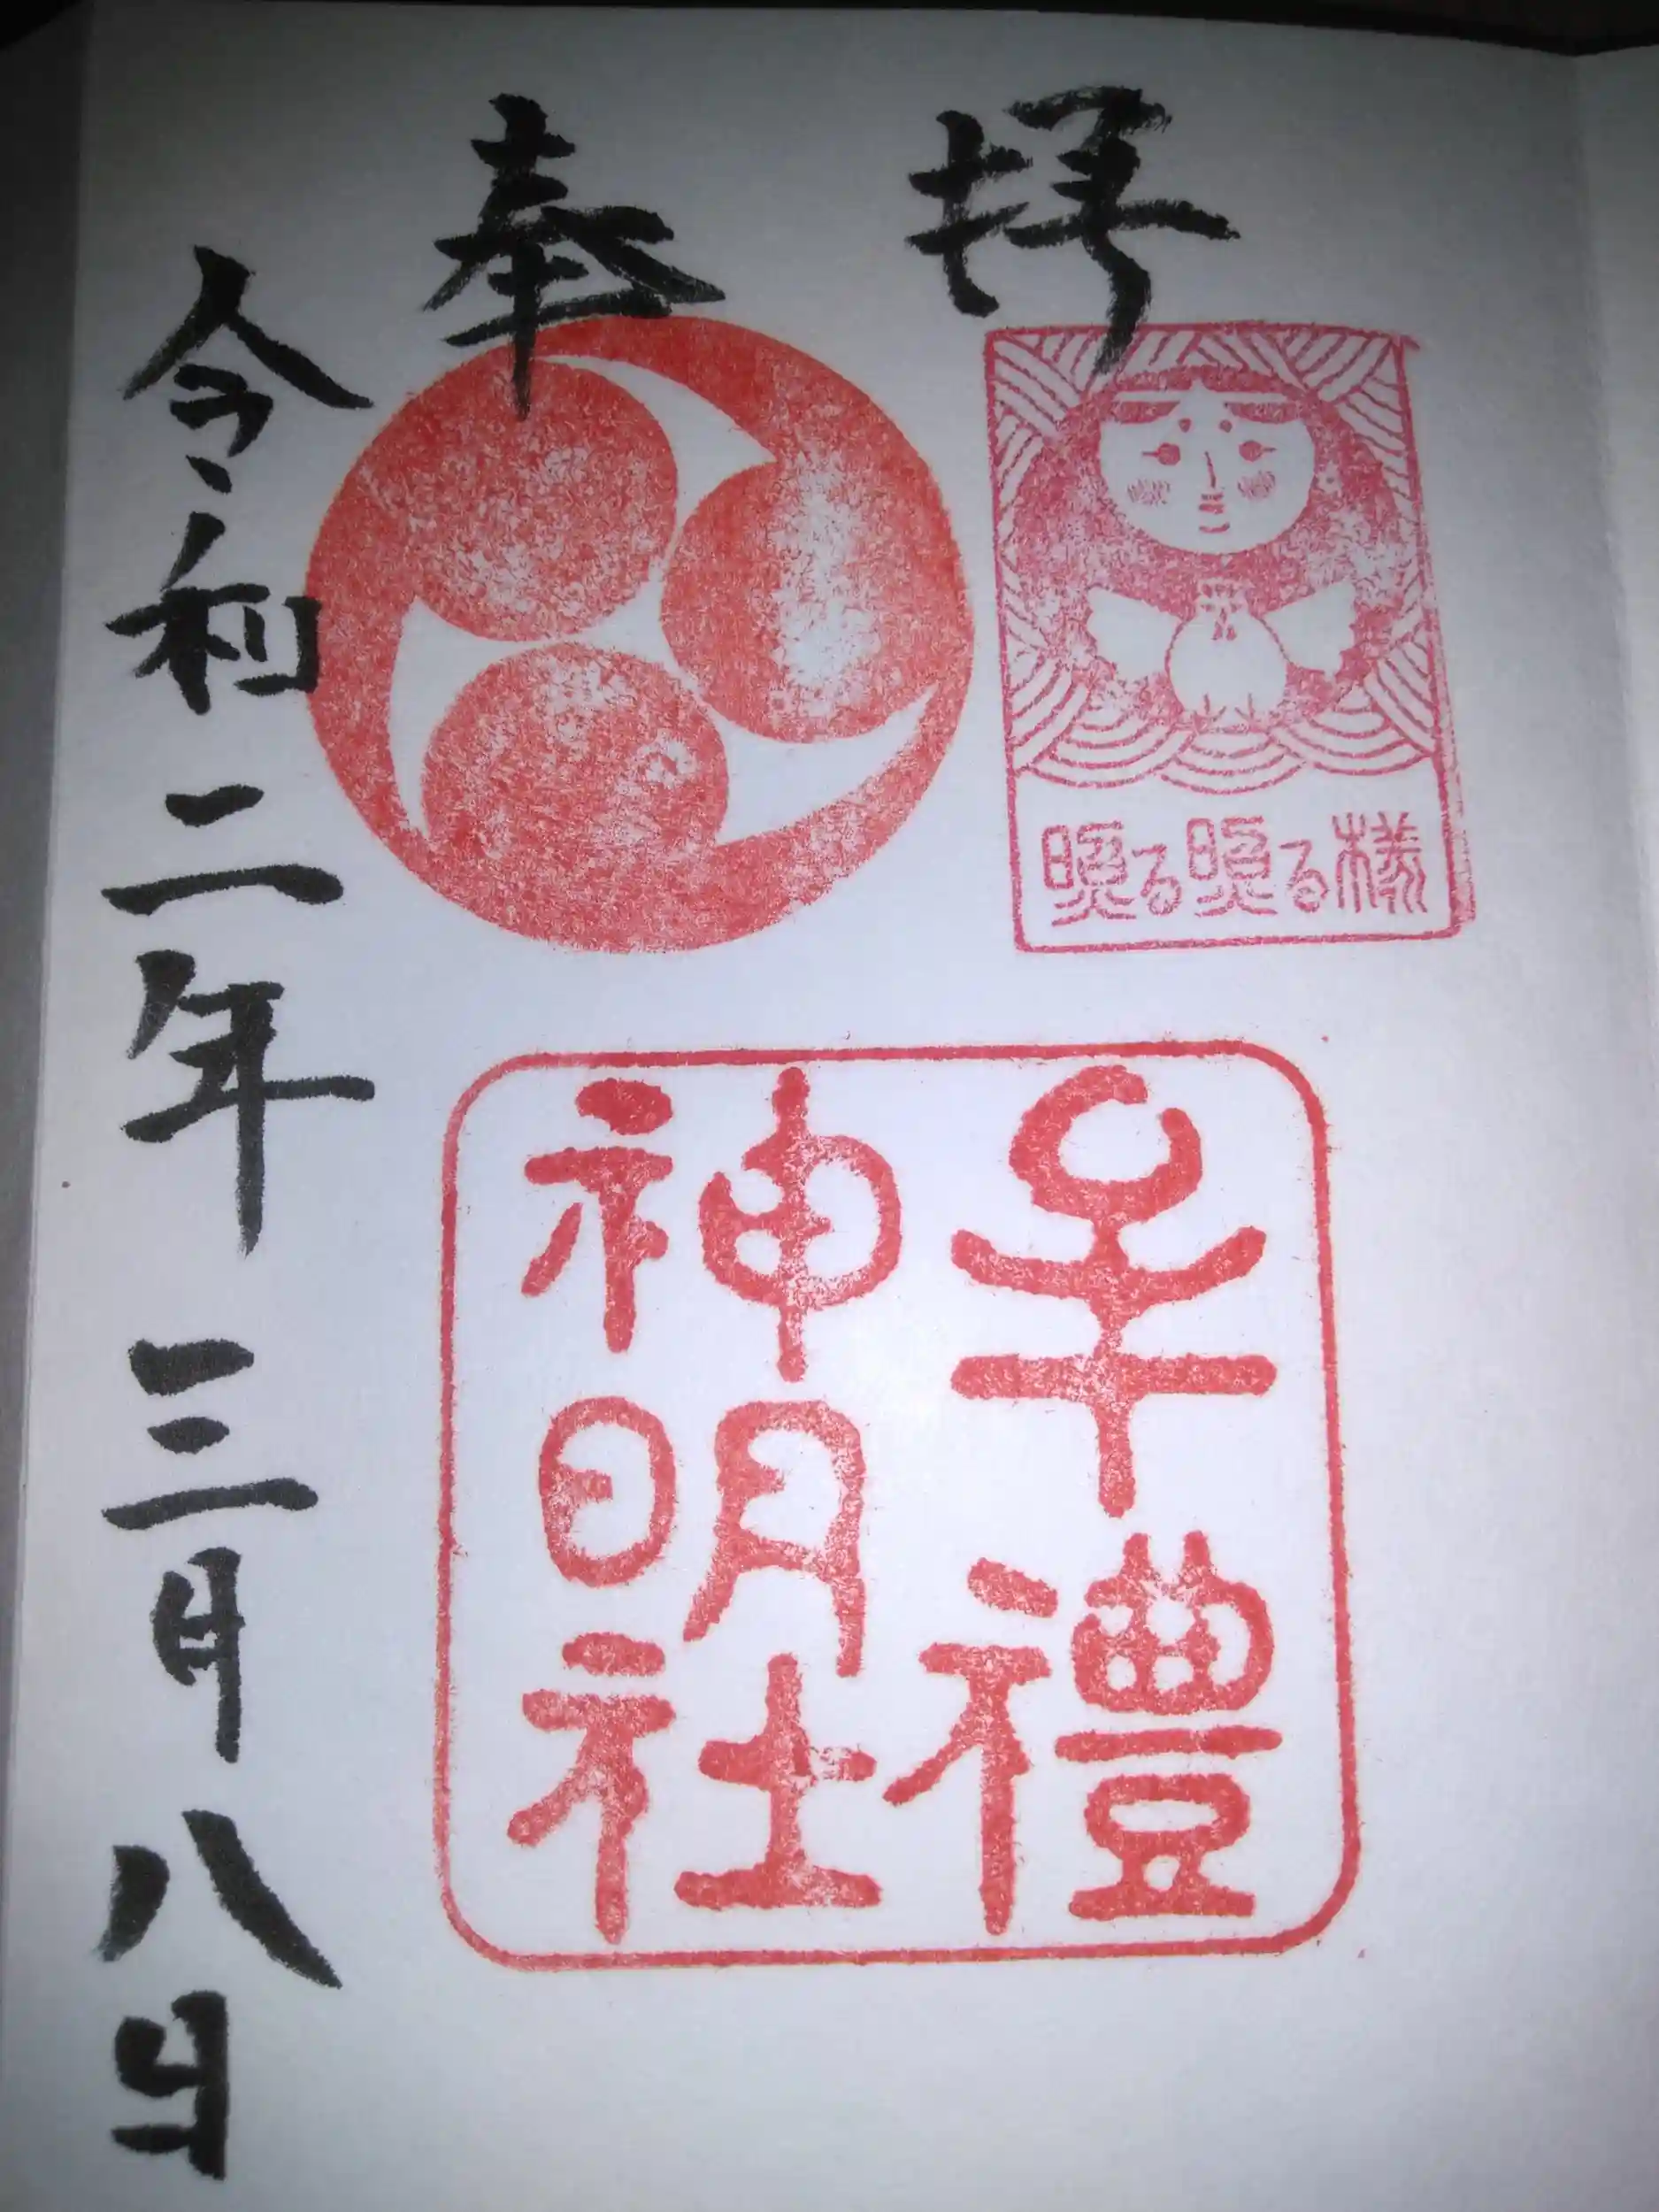 奉拝
照る照る様
牟禮
神明社
令和二年 三月八日